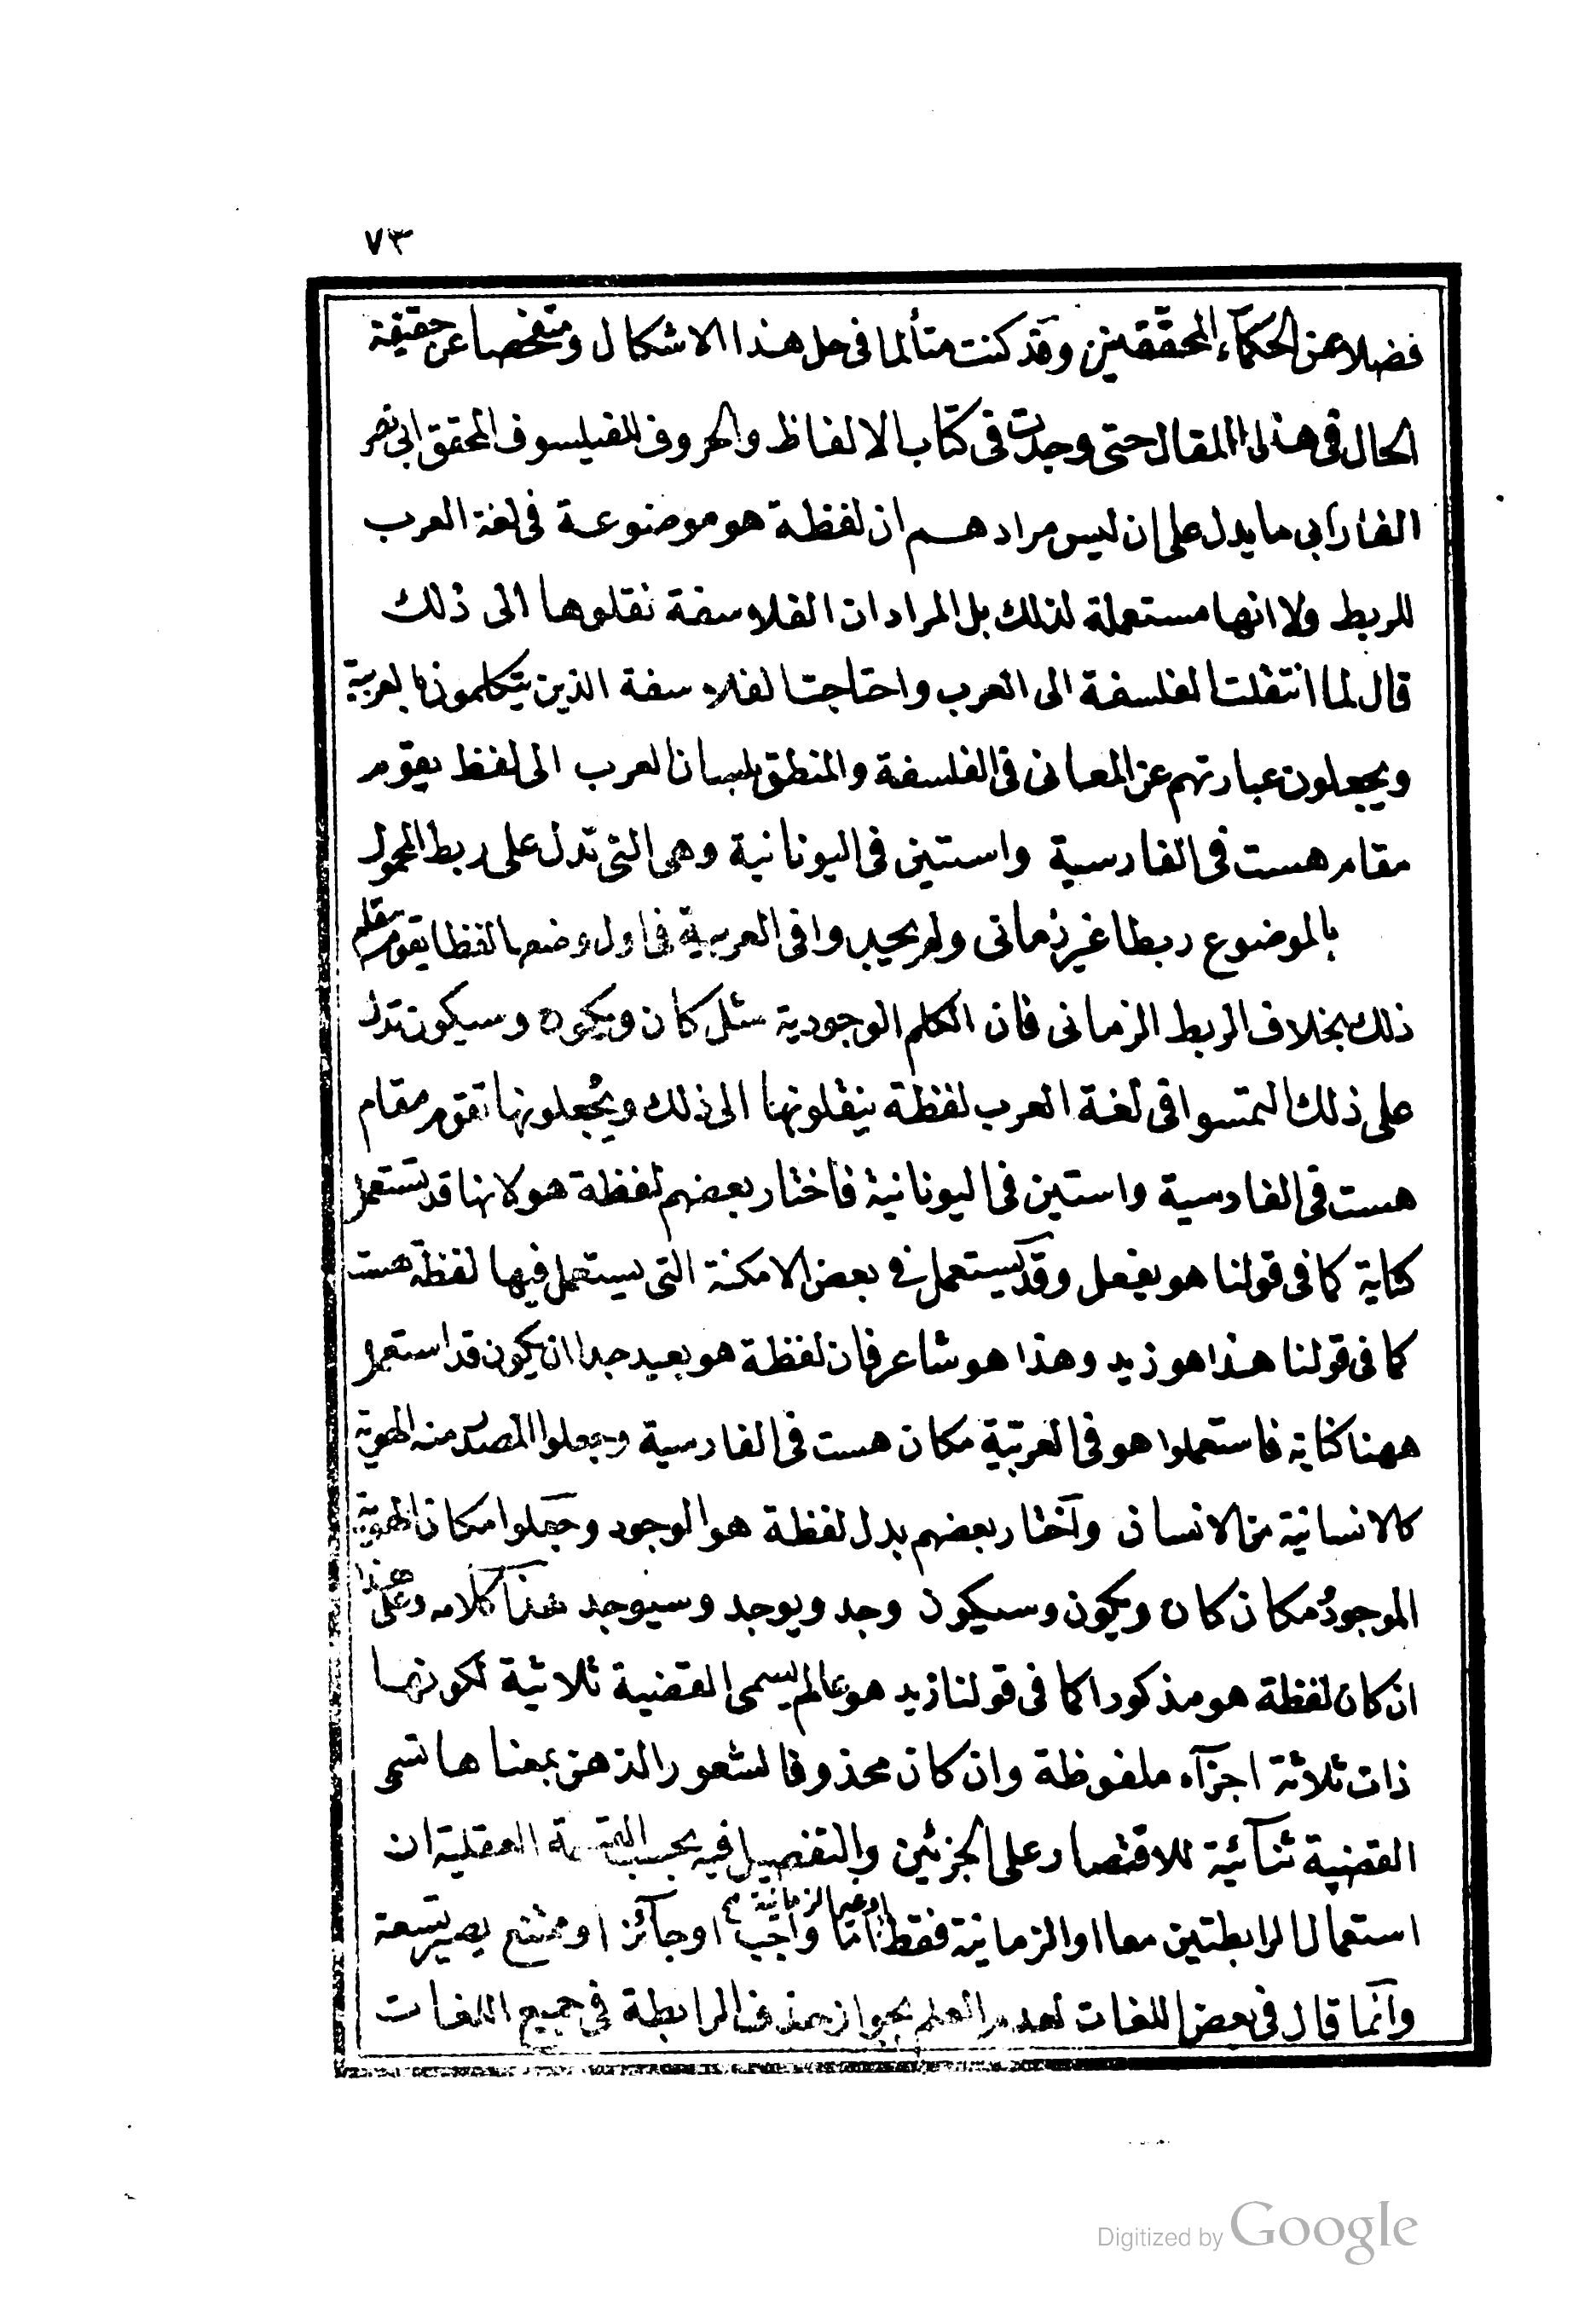 ٧٣
فضلا عن الحكمآء المحققين وقد كنت متألما فى حل هذا الاشكال ومتفحصا عن حقيقة
الحال فى هذا المقال حتى وجدت فى كتاب الالفاظ والحروف للفيلسوف المحقق ابى نصر
الفارابى ما يدل على ان ليس مرادهم ان لفظة هو موضوعة فى لغة العرب
للربط ولا انها مستعملة لذلك بل المراد ان الفلاسفة نقلوها الى ذلك
قال لما انتقلت الفلسفة الى العرب واحتاجت الفلاسفة الذين يتكلمون بالعربية
ويجعلون عبارتهم عن المعانى فى الفلسفة والمنطق بلسان العرب الى لفظ يقوم
مقام هست فى الفارسية واستين فى اليونانية وهى التى تدل على ربط المحمول
بالموضوع ربطا غير زمانى ولم يجدوا فى العربية فى اول وضعها لفظا يقوم مقام
ذلك بخلاف الربط الزمانى فان الكلم الوجودية مثل كان ويكون وسيكون تدل
على ذلك التمسوا فى لغة العرب لفظة ينقلونها الى ذلك ويجعلونها تقوم مقام
هست فى الفارسية واستين فى اليونانية فاختار بعضهم لفظة هو لانها قد تستعمل
كناية كما فى قولنا هو يفعل وقد يستعمل فى بعض الامكنة التى يستعمل فيها لفظة هست
كما فى قولنا هذا هو زيد وهذا هو شاعر فان لفظة هو بعيد جدا ان يكون قد استعمل
ههنا كناية فاستعملوا هو فى العربية مكان هست فى الفارسية وجعلوا المصدر منه الهوية
كالانسانية من الانسان وآختار بعضهم بدل لفظة هو الوجود وجعلوا مكان الهوية
الموجود مكان كان ويكون وسيكون وجد ويوجد وسيوجد هذا كلامه وعلى هذا
ان كان لفظة هو مذكورا كما فى قولنا زيد هو عالم يسمى القضية ثلاثية لكونها
ذات ثلاثة اجزآء ملفوظة وان كان محذوفا لشعور الذهن بمعناها تسمى
القضية ثنآئية للاقتصار على الجزئين والتفصيل فيه بحسب القسمة العقلية ان
استعمال الرابطتين معا او الزمانية فقط او غير الزمانية اما واجب او جآئز او ممتنع يصير تسعة
وآنما قال فى بعض اللغات لعدم العلم بجواز حذف الرابطة فى جميع اللغات
Digitized by Google